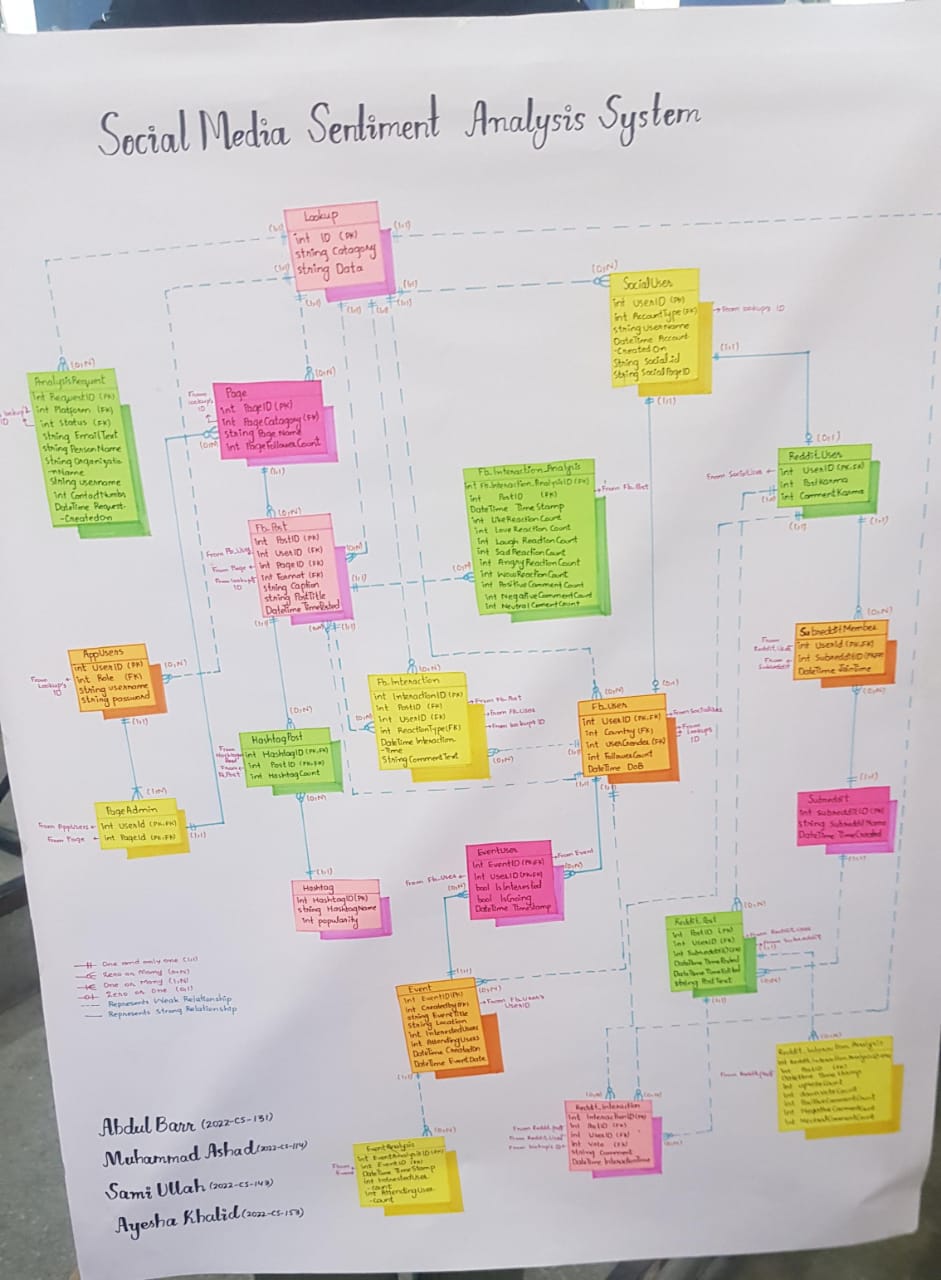 Social Media Sentiment Analysis System
Lookup
int ID (PK)
string Catagory
string Data
(1:1)
(1:1)
(1:1)
(1:1)
(1:1)
(0:N)
SocialUser
int UserID (PK)
int AccountType (FK)
string UserName
DateTime Account-
-CreatedOn
String Social.id
String SocialPageID
→From lookup's ID
(1:1)
(1:1)
(0:N)
AnalysisRequest
int RequestID (PK)
int Platform (FK)
int Status (FK)
string EmailText
string PersonName
String Organizatio-
-nName
String username
int ContactNumber
DateTime Request-
-CreatedOn
(0:N)
Page
int PageID (PK)
int PageCatagory (FK)
string Page Name
int PageFollowerCount
From
lookup's
ID
(0:N)
(1:1)
(0:1)
Reddit.User
int UserID (PK,FK)
int PostKarma
int CommentKarma
(1:1)
(1:1)
(1:1)
Fb.Interaction_Analysis
int Fb.Interaction_AnalysisID (PK)
int PostID (FK)
DateTime Time Stamp
int LikeReactionCount
int Love Reaction Count
int Laugh Reaction Count
int Sad Reaction Count
int Angry Reaction Count
int WowReactionCount
int Positive Comment Count
int Negative Comment Count
int Neutral Coment Count
→From Fb.Post
(0:N)
(0:N)
Fb.Post
int PostID (PK)
int UserID (FK)
int PageID (FK)
int Format (FK)
string Caption
string PostTitle
DateTime TimePosted
From Page
From lookup's
ID
(0:N)
(1:1)
(1:1)
(1:1)
(0:N)
SubredditMember
int UserId (PK,FK)
int SubredditID (PK,FK)
DateTime JoinTime
From
Reddit.User
From
Subreddit
(0:N)
AppUsers
int UserID (PK)
int Role (FK)
string username
string password
From
Lookup's
Id
(0:N)
(1:1)
(0:N)
Fb.Interaction
int InteractionID (PK)
int PostID (FK)
int UserID (FK)
int ReactionType(FK)
DateTime Interaction-
-Time
String CommentText
From Fb.Post
From Fb.User
From lookup's ID
(0:N)
(0:N)
(0:N)
(0:1)
Fb.User
int UserID (PK,FK)
int Country (FK)
int UserGender (FK)
int FollowerCount
DateTime DoB
From
Lookups
ID
(1:1)
(1:1)
(0:N)
HashtagPost
int HashtagID (PK,FK)
int PostID (PK,FK)
int HashtagCount
(0:N)
(1:N)
PageAdmin
int UserId (PK,FK)
int PageId (PK,FK)
From AppUsers
From Page
(1:1)
(1:1)
Subreddit
int SubredditID (PK)
string Subreddit Name
DateTime TimeCreated
(1:1)
EventUser
int EventID (PK,FK)
int UserID (PK,FK)
bool IsInterested
bool IsGoing
DateTime TimeStamp
→From Event
From Fb.User
(0:N)
(0:N)
(1:1)
Hashtag
int HashtagID (PK)
string HashtagName
int popularity
(0:N)
Reddit.Post
int PostID (PK)
int UserID (FK)
int SubredditID (FK)
DateTime TimePosted
DateTime TimeEdited
string Post Text
From Reddit.User
From Subreddit
(1:1)
(0:N)
(1:1)
One and only one (1:1)
Zero or Many (0:N)
One or Many (1:N)
Zero or One (0:1)
Represents Weak Relationship
Represents Strong Relationship
(1:1)
(0:N)
Event
int EventID (PK)
int CreatedBy (FK)
string EventTitle
String Location
int InterestedUsers
int AttendingUsers
DateTime CreatedOn
DateTime EventDate
→From Fb.User's
UserID
(1:1)
(0:N)
Reddit.Interaction_Analysis
int Reddit.Interaction_AnalysisID (PK)
int PostID (FK)
DateTime Time Stamp
int upvoteCount
int downvoteCount
int PositiveCommentCount
int NegativeCommentCount
int NeutralCommentCount
From Reddit.Post
(0:N)
(0:N)
Reddit.Interaction
int InteractionID (PK)
int PostID (FK)
int UserID (FK)
int Vote (FK)
String Comment
DateTime InteractionTime
From Reddit.post
From Reddit.User
(0:N)
(0:N)
EventAnalysis
int EventAnalysisID (PK)
int EventID (FK)
DateTime TimeStamp
int IntrestedUser-
-count
int AttendingUser-
-count
From
Event
Abdul Barr (2022-CS-131)
Muhammad Ashad (2022-CS-114)
Sami Ullah (2022-CS-143)
Ayesha Khalid (2022-CS-153)